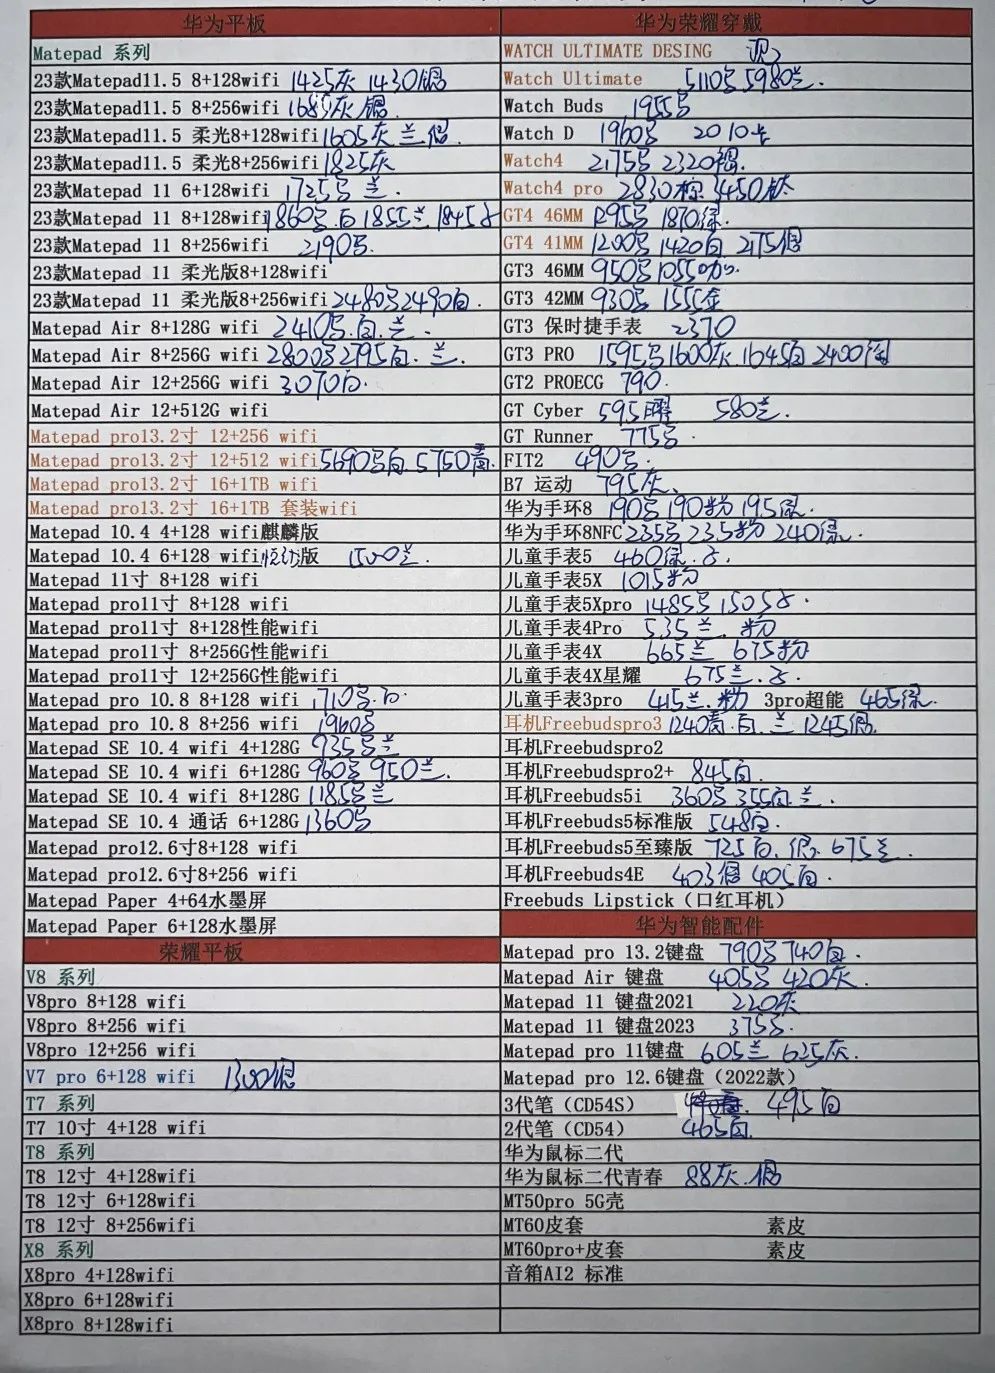 华为平板
Matepad 系列
23款Matepad11.5 8+128wifi 1425灰 1430银
23款Matepad11.5 8+256wifi 灰 银
23款Matepad11.5 柔光8+128wifi 1605灰 兰 银
23款Matepad11.5 柔光8+256wifi 1825灰
23款Matepad 11 6+128wifi 1725 兰.
23款Matepad 11 8+128wifi 1860 白 1855兰 1845
23款Matepad 11 8+256wifi 2190
23款Matepad 11 柔光版8+128wifi
23款Matepad 11 柔光版8+256wifi 2480 2490白.
Matepad Air 8+128G wifi 2410 .白.兰.
Matepad Air 8+256G wifi 2800 2795白.兰.
Matepad Air 12+256G wifi 3070白.
Matepad Air 12+512G wifi
Matepad pro13.2寸 12+256 wifi
Matepad pro13.2寸 12+512 wifi 5690 白 5750青.
Matepad pro13.2寸 16+1TB wifi
Matepad pro13.2寸 16+1TB 套装wifi
Matepad 10.4 4+128 wifi麒麟版
Matepad 10.4 6+128 wifi 版 1500兰.
Matepad 11寸 8+128 wifi
Matepad pro11寸 8+128 wifi
Matepad pro11寸 8+128性能wifi
Matepad pro11寸 8+256G性能wifi
Matepad pro11寸 12+256G性能wifi
Matepad pro 10.8 8+128 wifi 1710 白
Matepad pro 10.8 8+256 wifi 1960
Matepad SE 10.4 wifi 4+128G 935 兰
Matepad SE 10.4 wifi 6+128G 960 950兰.
Matepad SE 10.4 wifi 8+128G 1185 兰
Matepad SE 10.4 通话 6+128G 1360
Matepad pro12.6寸8+128 wifi
Matepad pro12.6寸8+256 wifi
Matepad Paper 4+64水墨屏
Matepad Paper 6+128水墨屏
荣耀平板
V8 系列
V8pro 8+128 wifi
V8pro 8+256 wifi
V8pro 12+256 wifi
V7 pro 6+128 wifi 1300银
T7 系列
T7 10寸 4+128 wifi
T8 系列
T8 12寸 4+128wifi
T8 12寸 6+128wifi
T8 12寸 8+256wifi
X8 系列
X8pro 4+128wifi
X8pro 6+128wifi
X8pro 8+128wifi
华为荣耀穿戴
WATCH ULTIMATE DESING 现
Watch Ultimate 5110 5980兰.
Watch Buds 1955
Watch D 1960 2010
Watch4 2175 2320
Watch4 pro 2830棕 3450钛
GT4 46MM 1295 1870绿.
GT4 41MM 1200 1420白 2175银
GT3 46MM 950 1055咖.
GT3 42MM 930 1555金
GT3 保时捷手表 2370
GT3 PRO 1595 1600灰 1645白 2400
GT2 PROECG 790.
GT Cyber 595曜 580兰.
GT Runner 775 .
FIT2 490 .
B7 运动 795灰.
华为手环8 190 190粉 195绿.
华为手环8NFC 235 235粉 240绿.
儿童手表5 460绿.
儿童手表5X 1015粉
儿童手表5Xpro 1485 1505
儿童手表4Pro 535兰. 粉
儿童手表4X 665兰 675粉
儿童手表4X星耀 675兰.
儿童手表3pro 415兰.粉 3pro超能 465绿.
耳机Freebudspro3 1240青.白.兰 1245银.
耳机Freebudspro2
耳机Freebudspro2+ 845白.
耳机Freebuds5i 360 355白.兰.
耳机Freebuds5标准版 548白.
耳机Freebuds5至臻版 725白.银 675兰.
耳机Freebuds4E 403银 405白.
Freebuds Lipstick（口红耳机）
华为智能配件
Matepad pro 13.2键盘 790 740白.
Matepad Air 键盘 405 420灰.
Matepad 11 键盘2021 220灰
Matepad 11 键盘2023 375 .
Matepad pro 11键盘 605兰 625灰.
Matepad pro 12.6键盘（2022款）
3代笔（CD54S） 495白
2代笔（CD54） 465白.
华为鼠标二代
华为鼠标二代青春 88灰.银
MT50pro 5G壳
MT60皮套 素皮
MT60pro+皮套 素皮
音箱AI2 标准